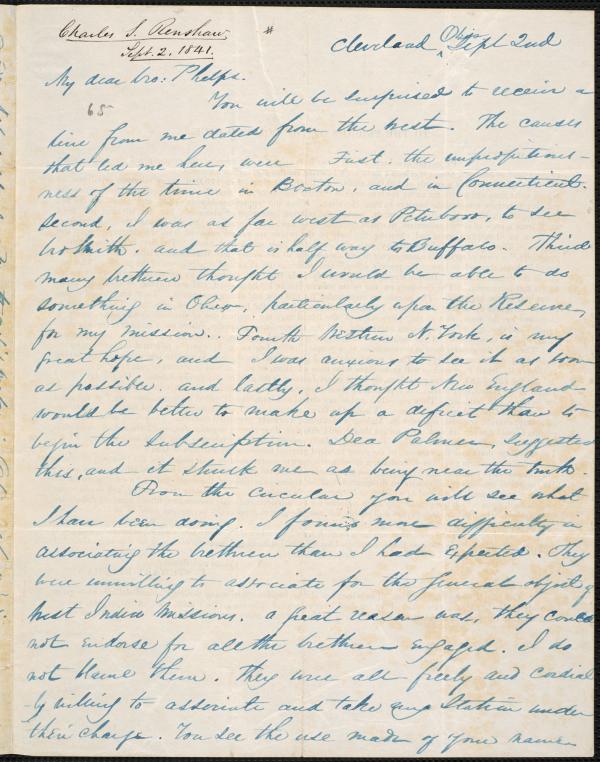 Charles S. Renshaw
Sept. 2, 1841.
#
Cleveland Ohio Sept 2nd
My dear bro: Phelps.
65
You will be surprised to receive a
line from me dated from the west. The causes
that led me here, were First. the unpropitious-
ness of the time in Boston, and in Connecticut.
Second, I was as far west as Peterboro, to see
bro Smith. and that is half way to Buffalo. Third
many brethren thought I would be able to do
something in Ohio, particularly upon the Reserve,
for my mission.. Fourth Western N. York, is my
great hope, and I was anxious to see it as soon
as possible. and lastly, I thought New England
would be better to make up a deficit than to
begin the subscription. Dea Palmer, suggested
this, and it struck me as being near the truth.
From the circular you will see what
I have been doing. I found more difficulty in
associating the brethren than I had expected. They
were unwilling to associate for the general object of
West India missions. a great reason was, they could
not endorse for all the brethren engaged. I do
not blame them. They were all freely and cordial
-ly willing to associate and take my Station under
their charge. You see the use made of your name